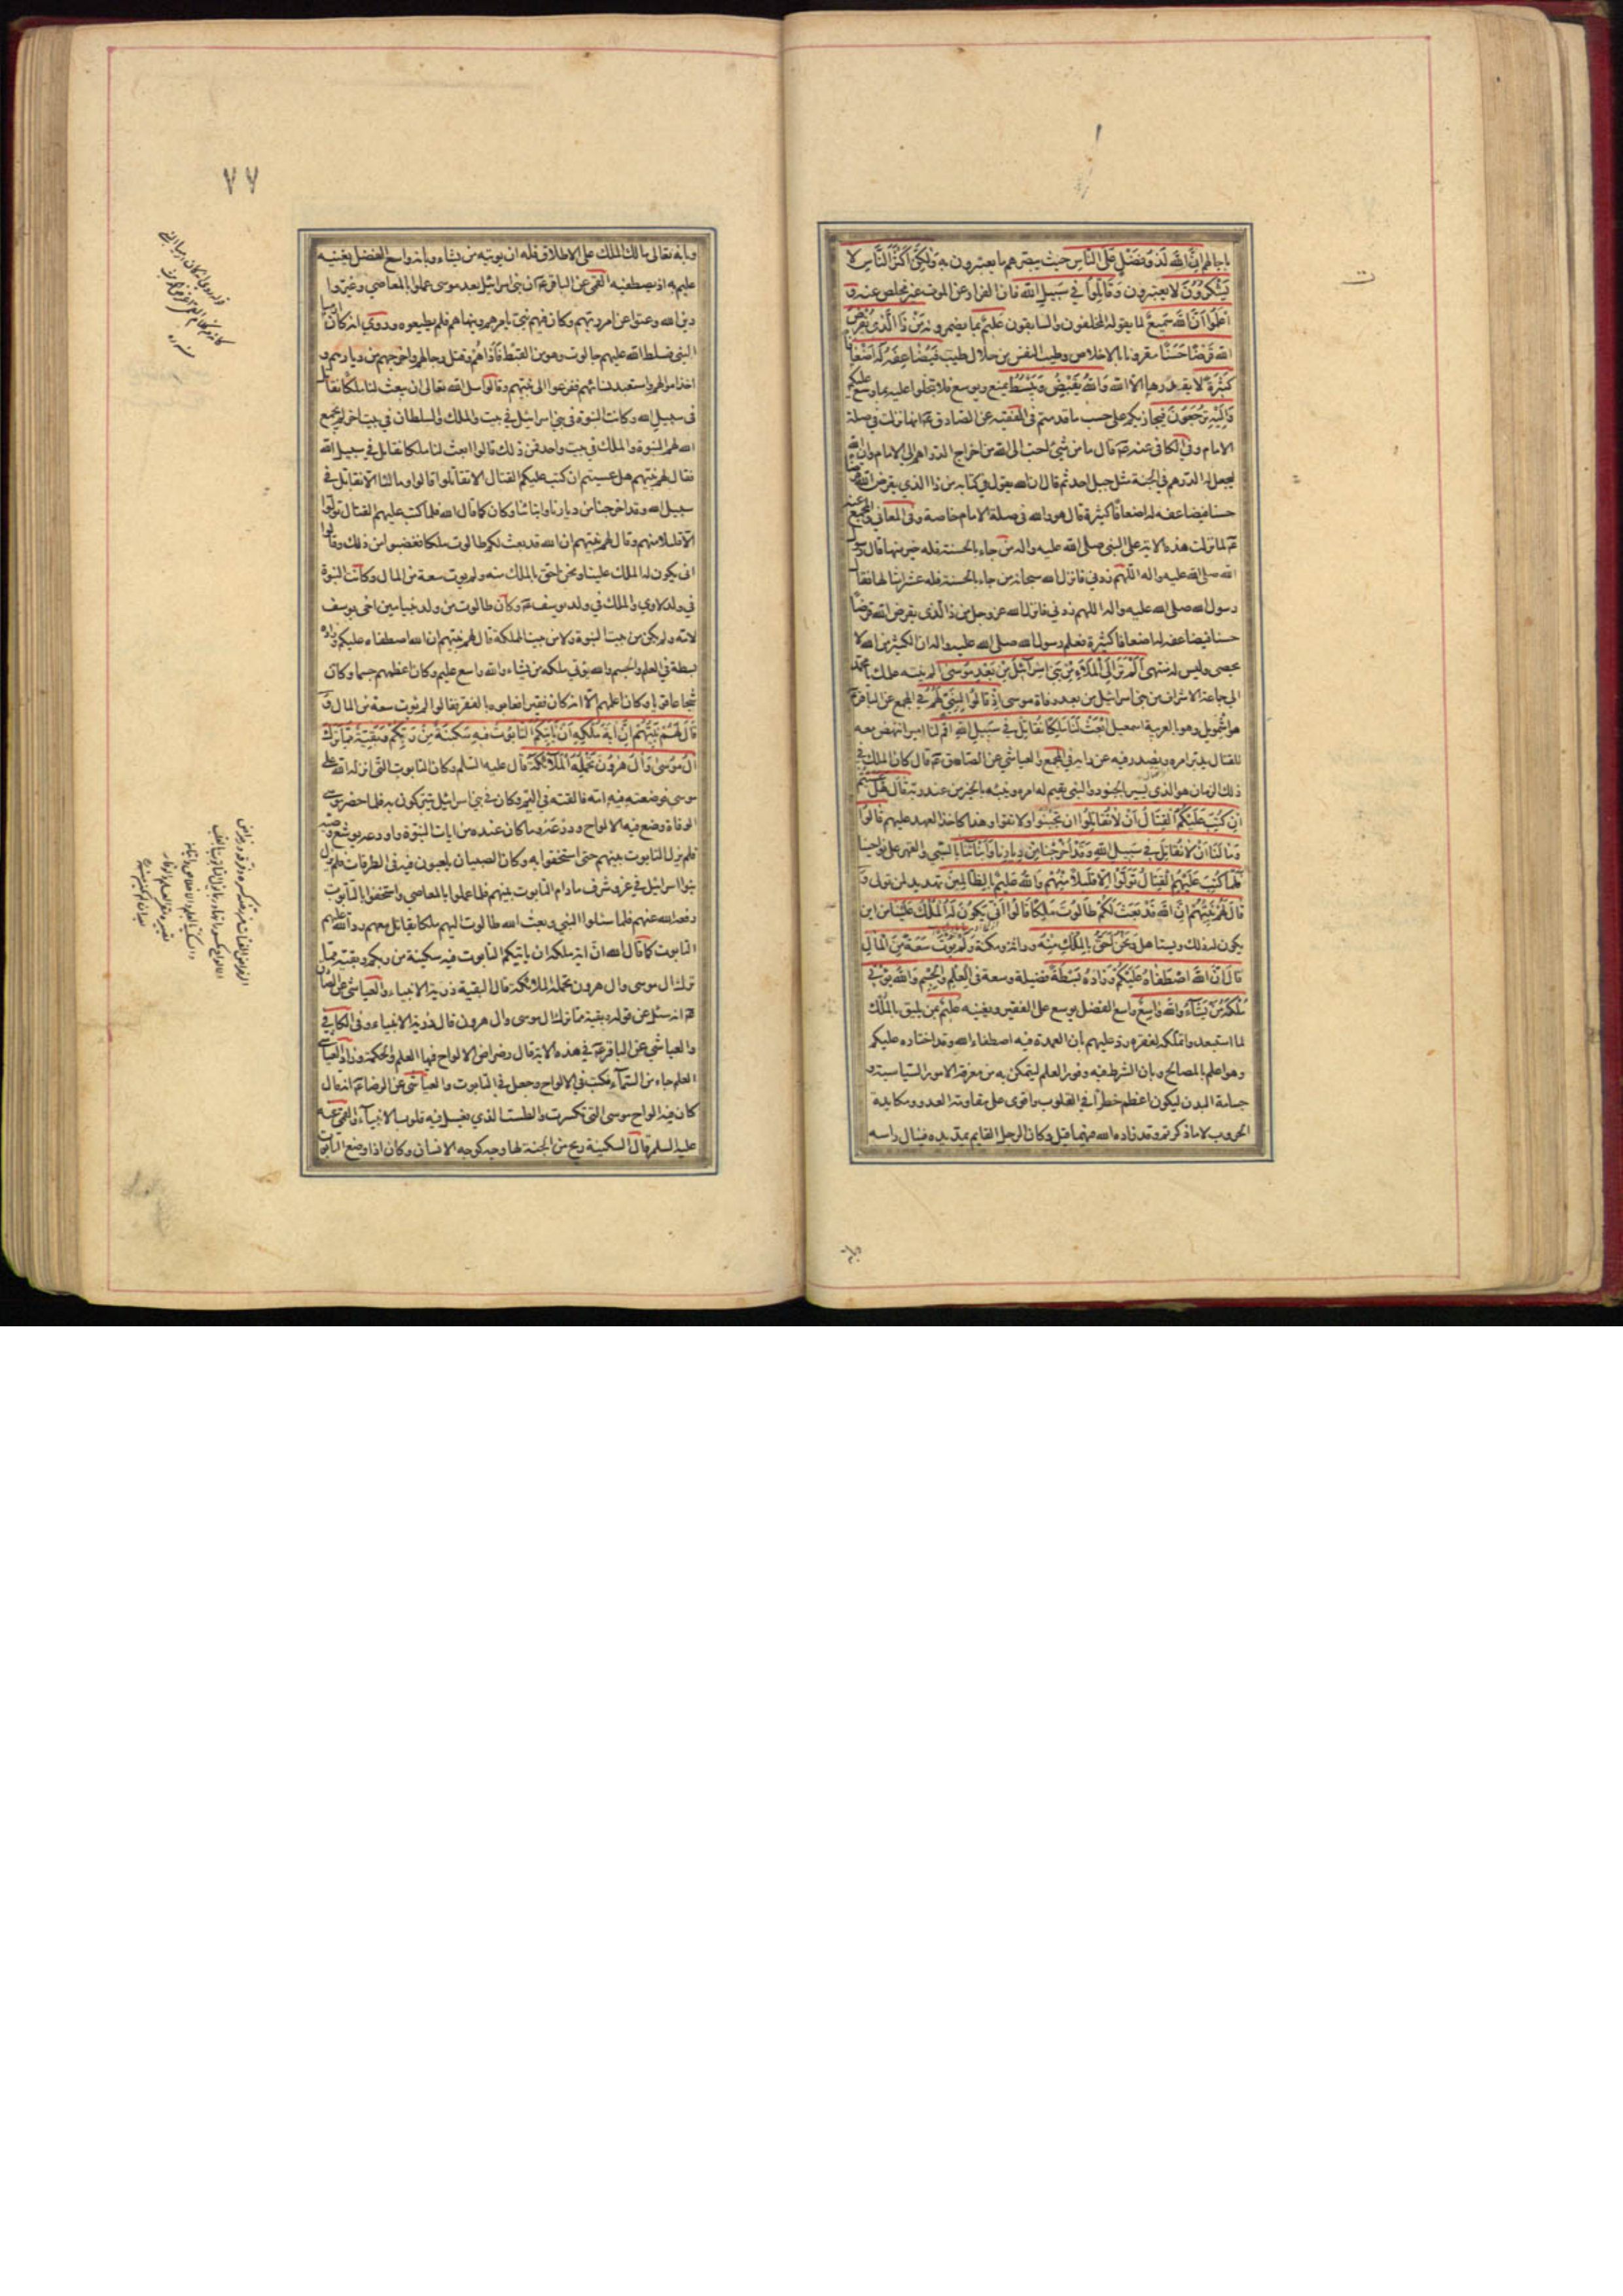 باجالهم إِنَّ اللهَ لَذُو فَضْلٍ عَلَى النَّاسِ حيث يبصرهم ما يعتبرون به وَلَكِنَّ أَكْثَرَ النَّاسِ لَا
يَشْكُرُونَ لا يعتبرون وَقَاتِلُوا فِي سَبِيلِ اللهِ فان الفرار عن الموت غير مخلص عنه وَ
اعْلَمُوا أَنَّ اللهَ سَمِيعٌ لما يقوله المخلفون والسابقون عَلِيمٌ بما يضمرونه مَنْ ذَا الَّذِي يُقْرِضُ
اللهَ قَرْضًا حَسَنًا مقرونا بالاخلاص وطيب النفس من حلال طيب فَيُضَاعِفَهُ لَهُ أَضْعَافًا
كَثِيرَةً لا يقدرها الا الله وَاللهُ يَقْبِضُ وَيَبْسُطُ يمنع ويوسع فلا تبخلوا عليه بما وسع عليكم
وَإِلَيْهِ تُرْجَعُونَ فيجازيكم على حسب ما قدمتم في الفقيه عن الصادق ع انها نزلت في صلة
الامام وفي الكافي عنه ع قال ما من شئ احب الى الله من اخراج الدراهم الى الامام وان الله
ليجعل له الدرهم في الجنة مثل جبل احد ثم قال ان الله يقول في كتابه من ذا الذي يقرض الله قرضا
حسنا فيضاعفه له اضعافا كثيرة قال هو والله في صلة الامام خاصة وفي المعاني والمجمع عنه
ع لما نزلت هذه الاية على النبي صلى الله عليه واله من جاء بالحسنة فله خير منها قال رسول
الله صلى الله عليه واله اللهم زدني فانزل الله سبحانه من جاء بالحسنة فله عشر امثالها فقال
رسول الله صلى الله عليه واله اللهم زدني فانزل الله عز وجل من ذا الذي يقرض الله قرضا
حسنا فيضاعفه له اضعافا كثيرة فعلم رسول الله صلى الله عليه واله ان الكثير من الله لا
يحصى وليس له منتهى أَلَمْ تَرَ إِلَى الْمَلَإِ مِنْ بَنِي إِسْرَائِيلَ مِنْ بَعْدِ مُوسَى الم ينته علمك يا محمد
الى جماعة الاشراف من بني اسرائيل من بعد وفاة موسى إِذْ قَالُوا لِنَبِيٍّ لَهُمُ في المجمع عن الباقر ع
هو اشمويل وهو بالعربية اسمعيل ابْعَثْ لَنَا مَلِكًا نُقَاتِلْ فِي سَبِيلِ اللهِ اقم لنا اميرا ننهض معه
للقتال يدبر امره ويصدر فيه عن رايه في المجمع والعياشي عن الصادق ع قال كان الملك في
ذلك الزمان هو الذي يسير بالجنود والنبي يقيم له امره وينبئه بالخبر من عند ربه قَالَ هَلْ عَسَيْتُمْ
إِنْ كُتِبَ عَلَيْكُمُ الْقِتَالُ أَنْ لَا تُقَاتِلُوا ان تجبنوا ولا تفوا وهذا كاخذ العهد عليهم قَالُوا
وَمَا لَنَا أَنْ لَا نُقَاتِلَ فِي سَبِيلِ اللهِ وَقَدْ أُخْرِجْنَا مِنْ دِيَارِنَا وَأَبْنَائِنَا بالسبي والقهر على نواحينا
فَلَمَّا كُتِبَ عَلَيْهِمُ الْقِتَالُ تَوَلَّوْا إِلَّا قَلِيلًا مِنْهُمْ وَاللهُ عَلِيمٌ بِالظَّالِمِينَ تهديد لمن تولى وَ
قَالَ لَهُمْ نَبِيُّهُمْ إِنَّ اللهَ قَدْ بَعَثَ لَكُمْ طَالُوتَ مَلِكًا قَالُوا أَنَّى يَكُونُ لَهُ الْمُلْكُ عَلَيْنَا من اين
يكون له ذلك ويستاهل وَنَحْنُ أَحَقُّ بِالْمُلْكِ مِنْهُ وراثة ومكنة وَلَمْ يُؤْتَ سَعَةً مِنَ الْمَالِ
قَالَ إِنَّ اللهَ اصْطَفَاهُ عَلَيْكُمْ وَزَادَهُ بَسْطَةً فضيلة وسعة فِي الْعِلْمِ وَالْجِسْمِ وَاللهُ يُؤْتِي
مُلْكَهُ مَنْ يَشَاءُ وَاللهُ وَاسِعٌ واسع الفضل يوسع على الفقير ويغنيه عَلِيمٌ بمن يليق بالملك
لما استبعدوا تملكه لفقره رد عليهم بان العمدة فيه اصطفاء الله وقد اختاره عليكم
وهو اعلم بالمصالح وبان الشرط فيه وفور العلم ليتمكن به من معرفة الامور السياسية و
جسامة البدن ليكون اعظم خطرا في القلوب واقوى على مقاومة العدو ومكايدة
الحروب لا ما ذكرتم وقد زاده الله فيهما قيل وكان الرجل القايم يمد يده فينال راسه
٧٧
وبانه تعالى مالك الملك على الاطلاق فله ان يوتيه من يشاء وبانه واسع الفضل يغنيه
عليم به اذ يصطفيه القمي عن الباقر ع ان بني اسرائيل بعد موسى عملوا بالمعاصي وغيروا
دين الله وعتوا عن امر ربهم وكان فيهم نبي يامرهم وينهاهم فلم يطيعوه وروي انه كان ارميا
النبي فسلط الله عليهم جالوت وهو من القبط فاذاهم وقتل رجالهم واخرجهم من ديارهم و
اخذ اموالهم واستعبد نسائهم ففزعوا الى نبيهم وقالوا سل الله تعالى ان يبعث لنا ملكا نقاتل
في سبيل الله وكانت النبوة في بني اسرائيل في بيت والملك والسلطان في بيت اخر لم يجمع
الله لهم النبوة والملك في بيت واحد فمن ذلك قالوا ابعث لنا ملكا نقاتل في سبيل الله
فقال لهم نبيهم هل عسيتم ان كتب عليكم القتال الا تقاتلوا قالوا وما لنا الا نقاتل في
سبيل الله وقد اخرجنا من ديارنا وابنائنا وكان كما قال الله فلما كتب عليهم القتال تولوا
الا قليلا منهم وقال لهم نبيهم ان الله قد بعث لكم طالوت ملكا فغضبوا من ذلك وقالوا
انى يكون له الملك علينا ونحن احق بالملك منه ولم يوت سعة من المال وكانت النبوة
في ولد لاوي والملك في ولد يوسف ع وكان طالوت من ولد بنيامين اخي يوسف
لامه ولم يكن من بيت النبوة ولا من بيت المملكة قال لهم نبيهم ان الله اصطفاه عليكم وزاده
بسطة في العلم والجسم والله يوتي ملكه من يشاء والله واسع عليم وكان اعظمهم جسما وكان
شجاعا قويا وكان اعلمهم الا انه كان فقيرا فعابوه بالفقر فقالوا لم يوت سعة من المال وَ
قَالَ لَهُمْ نَبِيُّهُمْ إِنَّ آيَةَ مُلْكِهِ أَنْ يَأْتِيَكُمُ التَّابُوتُ فِيهِ سَكِينَةٌ مِنْ رَبِّكُمْ وَبَقِيَّةٌ مِمَّا تَرَكَ
آلُ مُوسَى وَآلُ هَرُونَ تَحْمِلُهُ الْمَلَائِكَةُ قال عليه السلم وكان التابوت التي انزله الله على
موسى فوضعته فيه امه فالقته في اليم وكان في بني اسرائيل يتبركون به فلما حضر موسى
الوفاة وضع فيه الالواح ودرعه وما كان عنده من ايات النبوة واودعه يوشع وصيه
فلم يزل التابوت بينهم حتى استخفوا به وكان الصبيان يلعبون فيه في الطرقات فلم يزل
بنوا اسرائيل في عز وشرف ما دام التابوت بينهم فلما عملوا بالمعاصي واستخفوا بالتابوت
رفعه الله عنهم فلما سئلوا النبي وبعث الله طالوت اليهم ملكا يقاتل معهم رد الله عليهم
التابوت كما قال الله ان اية ملكه ان ياتيكم التابوت فيه سكينة من ربكم وبقية مما
ترك ال موسى وال هرون تحمله الملائكة قال البقية ذرية الانبياء والعياشي عن الصادق
ع انه سئل عن قوله وبقية مما ترك ال موسى وال هرون قال ذرية الانبياء وفي الكافي
والعياشي عن الباقر ع في هذه الاية قال رضراض الالواح فيها العلم والحكمة وزاد العياشي
العلم جاء من السماء فكتب في الالواح وجعل في التابوت والعياشي عن الرضا ع انه قال
كان فيه الواح موسى التي تكسرت والطست الذي يغسل فيه قلوب الانبياء والقمي عنه
عليه السلم قال السكينة ريح من الجنة لها وجه كوجه الانسان وكان اذا وضع التابوت